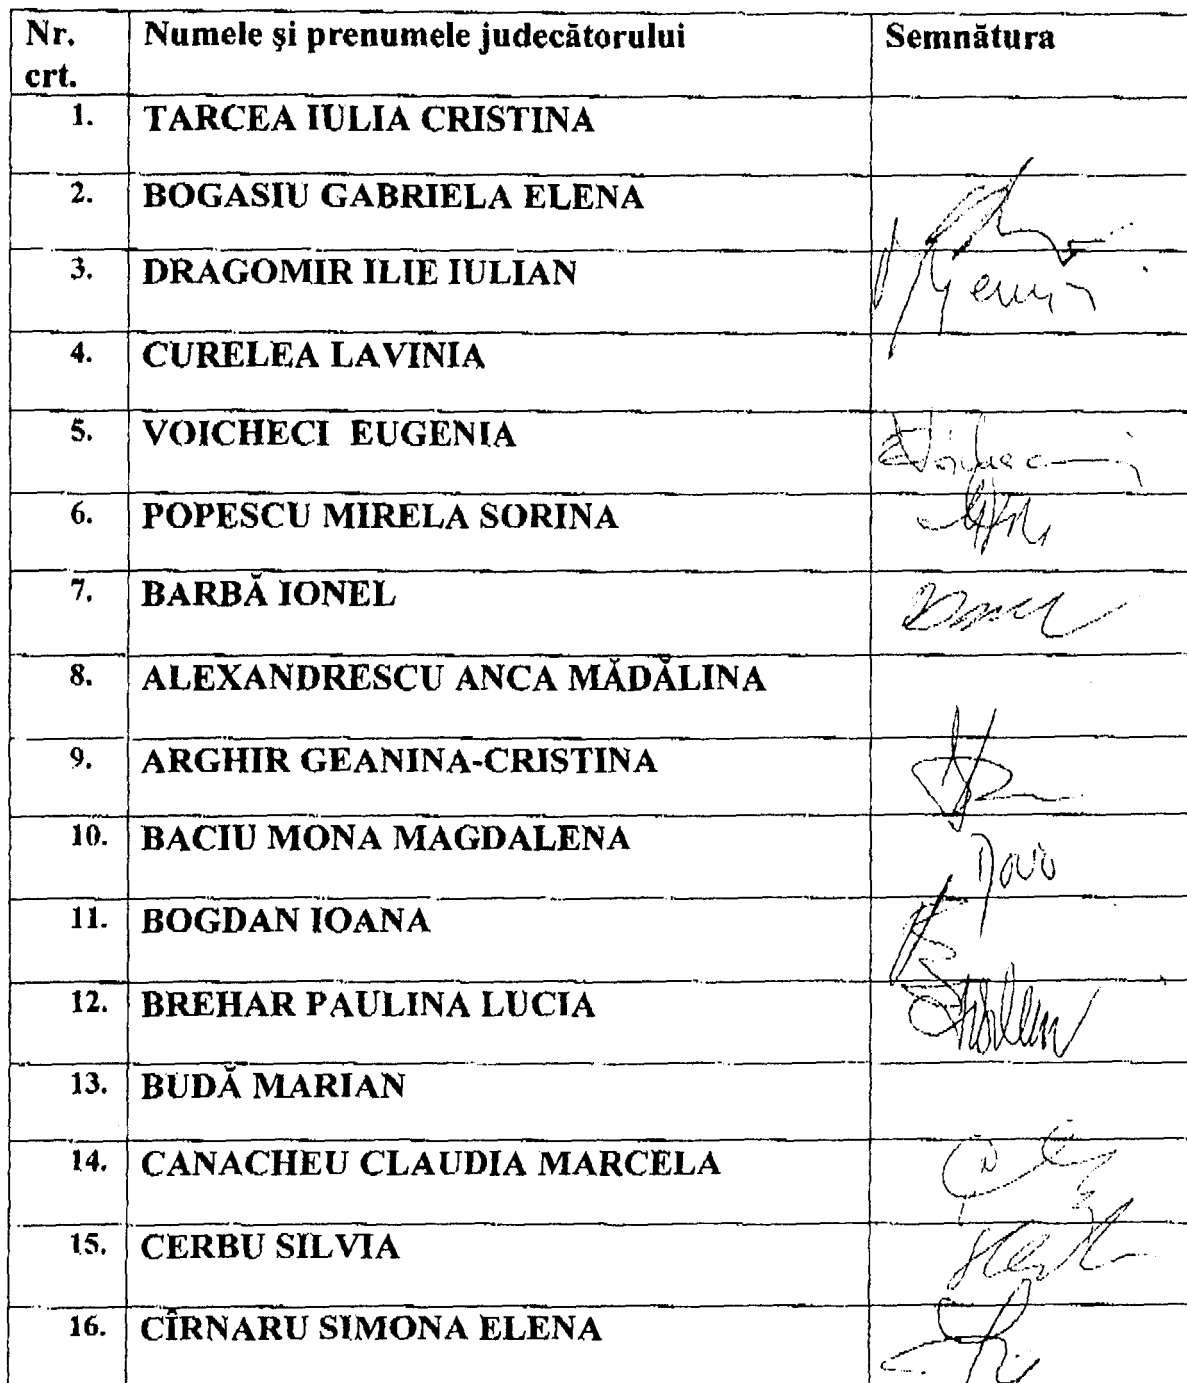 Nr. crt. Numele și prenumele judecătorului Semnătura
1. TARCEA IULIA CRISTINA
2. BOGASIU GABRIELA ELENA
3. DRAGOMIR ILIE IULIAN
4. CURELEA LAVINIA
5. VOICHECI EUGENIA
6. POPESCU MIRELA SORINA
7. BARBĂ IONEL
8. ALEXANDRESCU ANCA MĂDĂLINA
9. ARGHIR GEANINA-CRISTINA
10. BACIU MONA MAGDALENA
11. BOGDAN IOANA
12. BREHAR PAULINA LUCIA
13. BUDĂ MARIAN
14. CANACHEU CLAUDIA MARCELA
15. CERBU SILVIA
16. CÎRNARU SIMONA ELENA